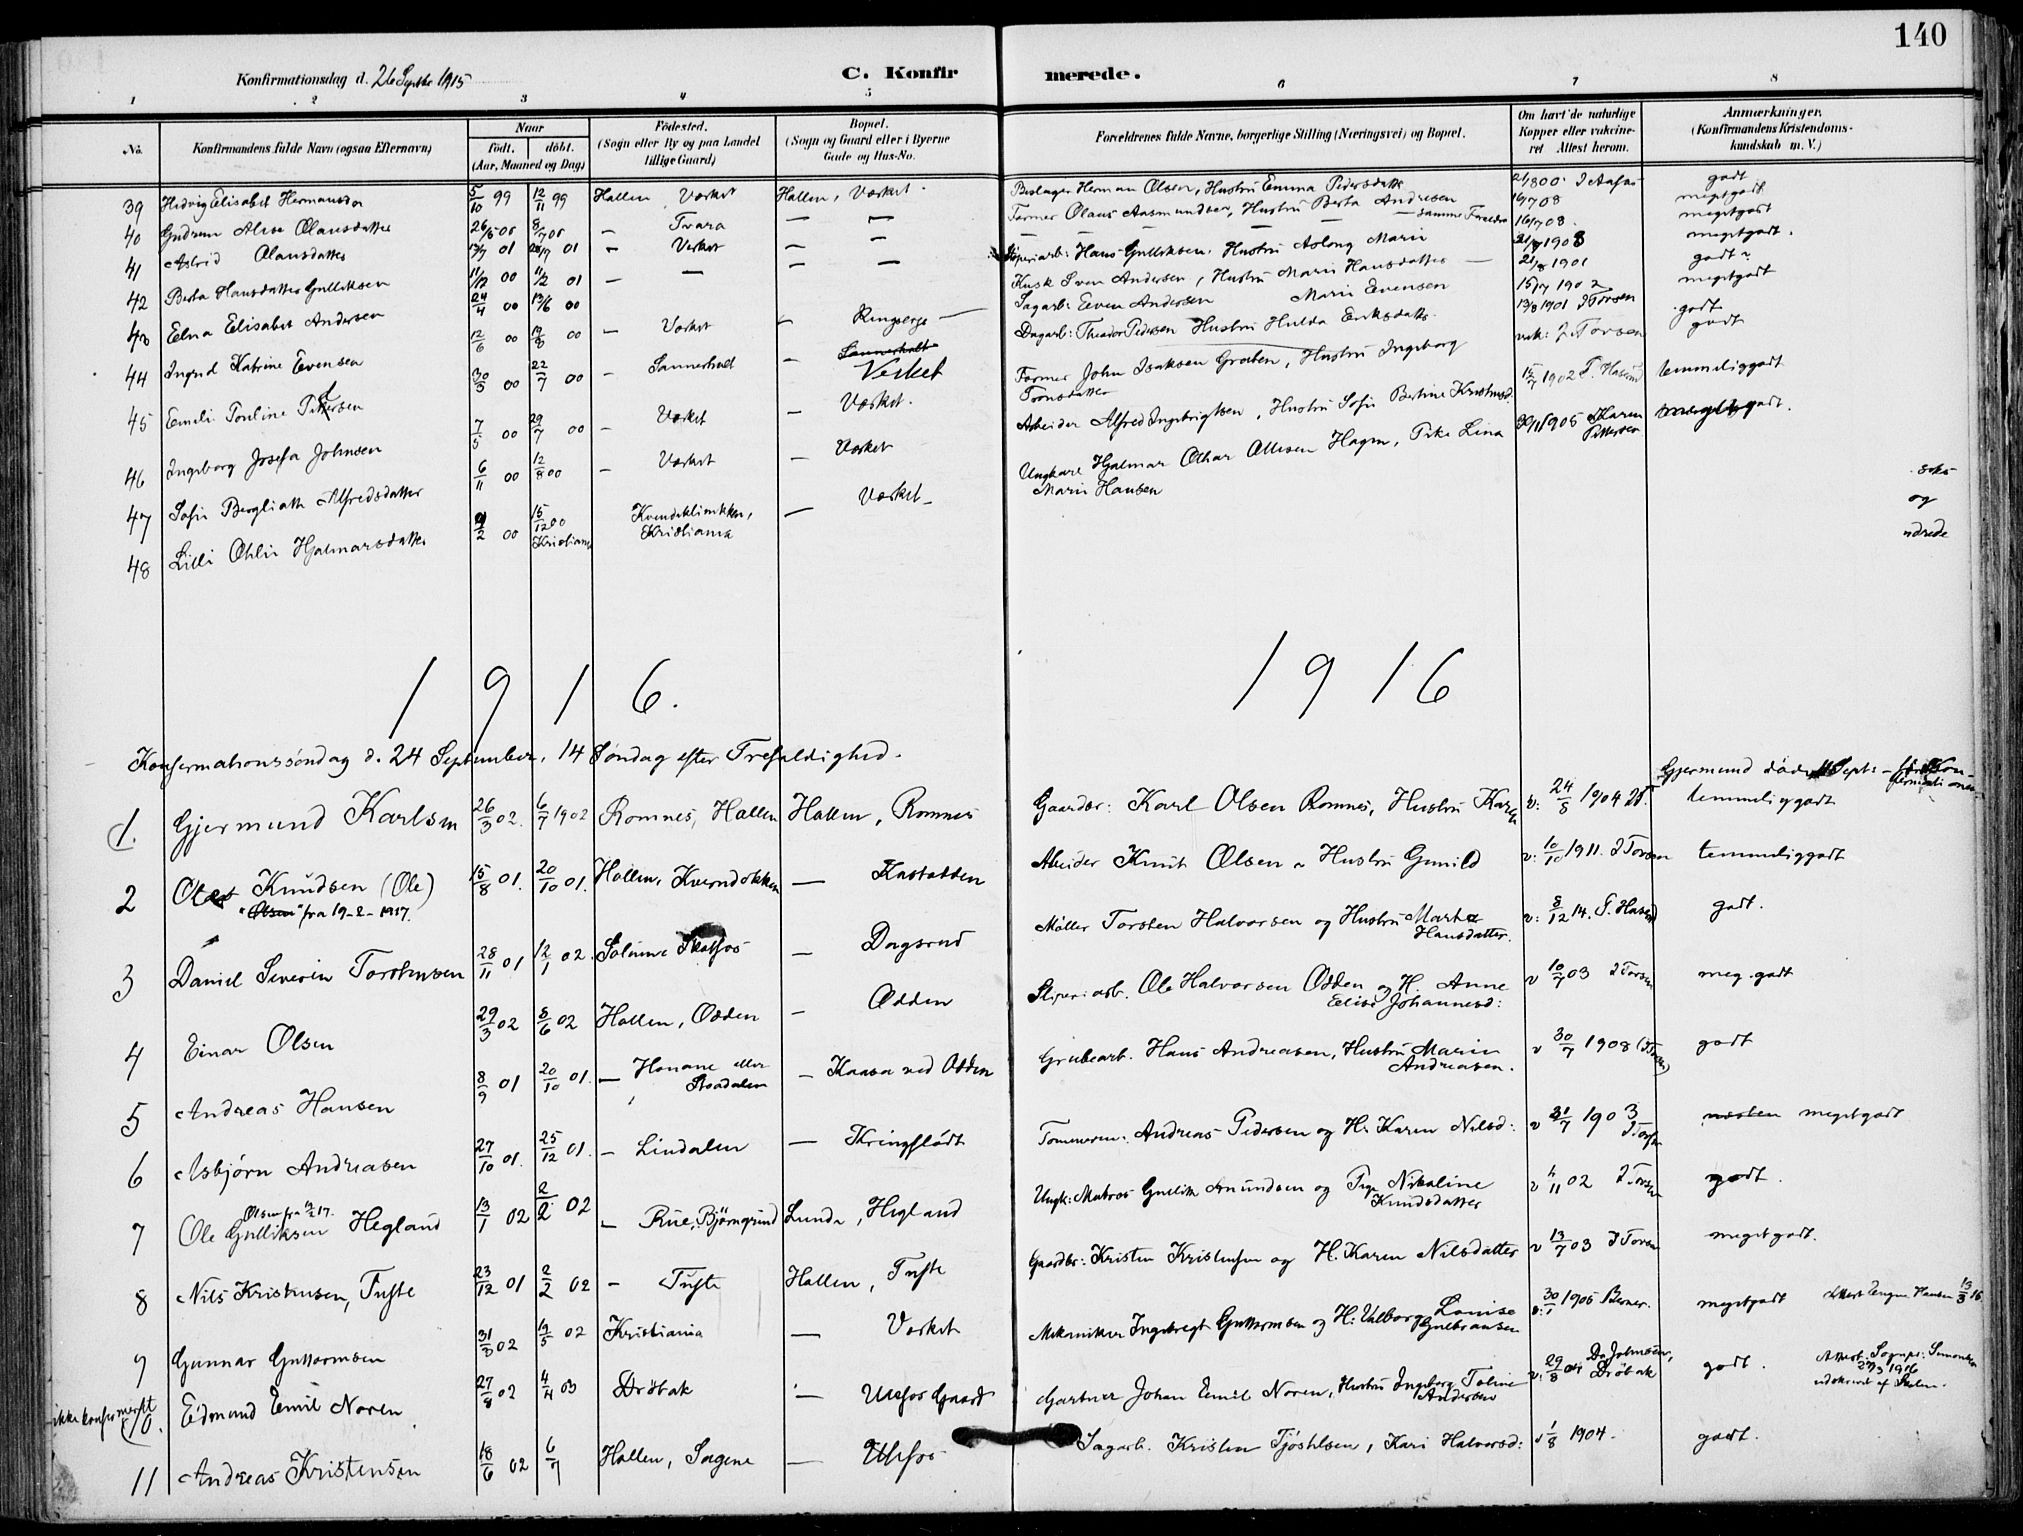 140
Konfirmationsdag d. 26 Septbr 1915
C. Konfirmerede.
1 2 3 4 5 6 7 8
No. Konfirmandens fulde Navn (ogsaa Efternavn) Naar født. døbt. (Aar, Maaned og Dag) Fødested. (Sogn eller By og paa Landet tillige Gaard) Bopæl. (Sogn og Gaard eller i Byerne Gade og Hus-No. Forældrenes fulde Navne, borgerlige Stilling (Næringsvei) og Bopæl. Om havt de naturlige Kopper eller vaccineret Attest herom. Anmærkninger. (Konfirmandens Kristendomskundskab m. V.)
39 Hedvig Elisabet Hermansdr 5/10 99 12/11 99 Hollen, Værket Hollen, Værket. Herman Olsen, Hustru Emma Pedersdatter godt
40 Gudrun Alise Olausdatter — Tvara — — Former Olaus Aasmundsen, Hustru Berta Andresen 16/7 08 megetgodt
41 Astrid Olausdatter 13/7 01 01 — Verket — — — samme Forældre 16/7 08. megetgodt
42 Berta Hansdatter Gulliksen 11/12 00 11/2 01 — — — — Sliperiarb: Hans Gulliksen, Hustru Aslaug Marie 1908 megetgodt.
43 Elna Elisabet Andersen 24/4 00 13/6 00 Kusk Sven Andersen, Hustru Marie Hansdatter 21/8 1901 godt
44 Ingrid Katrine Evensen 12/6 00 19/8 00 — Værket — Ringsevje Sagarb: Even Andersen Marie Evensen 15/7 1902 megetgodt
45 Emeli Pouline Pettersen 30/3 00 22/7 00 — Sannerholt — Sannerholt Verket Dagarb: Theodor Pedersen Hustru Hulda Eriksdatter 13/8 1901 J Torsen godt
46 Ingeborg Josefa Johnsen 7/5 00 29/7 00 — Værket — Værket. Former John Isaksen Graaten, Hustru Ingeborg Tronsdatter vak: J. Torsen godt
47 Sofie Bergliotte Alfredsdatter 6/11 00 12/8 00 — Værket — Værket Arbeider Alfred Ingebrigtsen, Hustru Sofie Bertine Kristensd. 15/7 1902 T. Hasund temmeliggodt
48 Lilli Othlie Hjalmarsdatter 9/2 00 15/12 00 Kristiania Kvindeklinikken, Kristiania — Værket Ungkarl Hjalmar Othar Ottesen Hagen, Pike Lina Marie Hansen 30/11 1905 Karen Pettersen megetgodt.
og
1916. 1916
Konfermationssøndag d. 24 September, 14 Søndag efter Trefoldighed.
Gjermund døde Septr. - før Konfermationen
1. Gjermund Karlsen 26/3 02. 6/7 1902 Romnes, Hollen Hollen, Romnes Gaardbr: Karl Olsen Romnes, Hustru Karen v: 24/8 1904 temmeliggodt
2 Olaf Knudsen (Ole) "Olsen" fra 19-2-1917. 15/8 01. 20/10 01. Hollen, Kverndokken — Kastetten Arbeider Knut Olsen & Hustru Gunild v: 10/10 1911. J Torsen temmeliggodt
3 Daniel Severin Torstensen 28/11 01 12/1 02. Solum Skotfos — Dagsrud Møller Torsten Halvorsen og Hustru Marte Hansdatter. v: 8/12 14. T. Hasund godt.
4 Einar Olsen 29/3 02 8/6 02 Hollen, Odden — Odden Sliperiarb. Ole Halvorsen Odden og H. Anne Elise Johannesd: v 10/7 03 J Torsen meg. godt
5 Andreas Hansen 8/9 01 20/10 01. — Honane eller Roadalen — Kaasa ved Odden Grubearb. Hans Andreasen, Hustru Marie Andreasen. v 30/7 1908 (J Torsen) godt
6 Asbjørn Andreasen 27/10 01. 25/12 01. — Lindalen — Kringflødt Tømmerm: Andreas Pedersen og H. Karen Nilsd: v 31/7 1903 J Torsen næsten megetgodt
7 Ole Gulliksen Hegland Olsen fra 17. 13/1 02 2/2 02 — Rue, Bjørngrund Lunde, Hegland Ungk: Matros Gullik Amundsen og Pige Nikoline Knudsdatter v 4/11 02 J Torsen godt.
8 Nils Kristensen, Tufte 23/12 01 2/2 02 — Tufte Hollen, Tufte Gaardbr: Kristen Kristensen og H. Karen Nilsdatter v 13/7 03 J Torsen megetgodt.
9 Gunnar Guttormsen 31/3 02 19/5 02 Kristiania — Værket Mekaniker Ingebregt Guttormsen og H: Valborg Lovise Gulbransen v: 30/1 1905 Berner. megetgodt
ikke konfermert 10. Edmund Emil Noren 27/8 02 4/4 03 Drøbak — Ulefos Gaard Gartner Johan Emil Noren, Hustru Ingeborg Toline Andersen v: 29/8 04 Dr Johnsen, Drøbak godt. Attest. Sognpr: 1916 udskrevet af Skolen.
11 Andreas Kristensen 18/6 02 6/7 Hollen, Sagene — Ulefos Sagarb. Kristen Tjøstelsen, Kari Halvorsd: v 1/8 1904. godt.